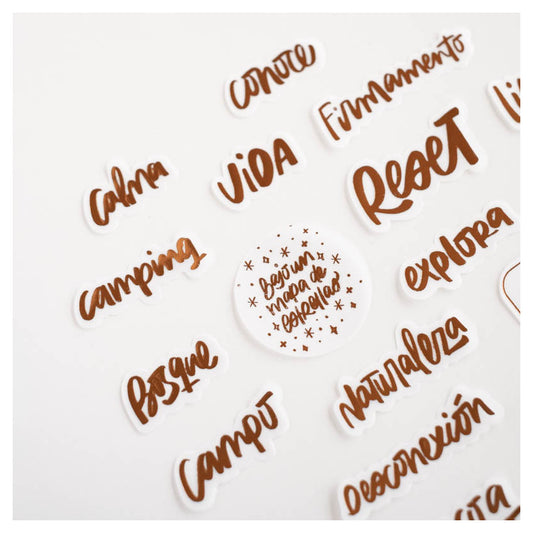 conoce
Firmamento
calma
VIDA
Reset
camping
Bajo un
mapa de
estrellas
explora
Bosque
Naturaleza
campo
Desconexión